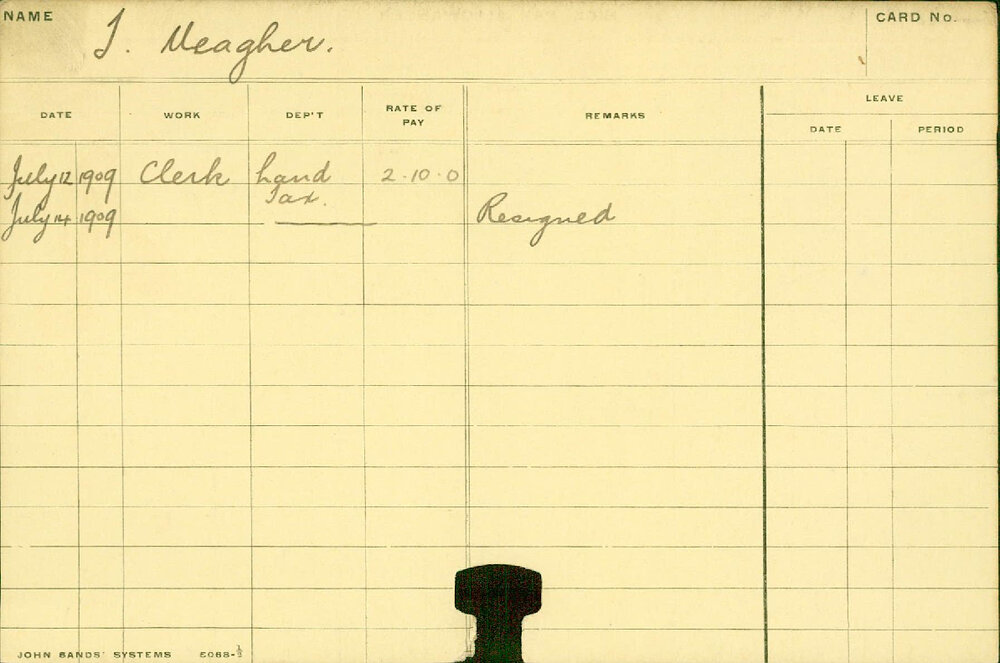 NAME J. Meagher. CARD No.
DATE WORK DEP'T RATE OF PAY REMARKS LEAVE
DATE PERIOD
July 12 1909 Clerk Land Tax. 2-10-0
July 14 1909 Resigned
JOHN SANDS' SYSTEMS 5068-½